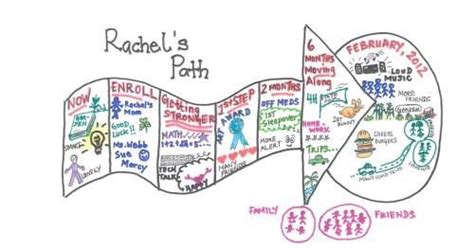 Rachel's
Path
NOW
LONELY
ENROLL
Rachel's
Mom
Good
Luck!!
Ms. Webb
Sue
Mercy
Getting
STRONGER
MATH
TECH
TALK
HAPPY
1st STEP
ART
AWARD
MANY FRIENDS
2 MONTHS
OFF MEDS
1ST
Sleepover
MORE
ALERT
6
MONTHS
Moving
Along
4H
HOME
WORK
TRIPS...
FEBRUARY, 2012
LOUD
MUSIC
MORE
FRIENDS
GARDEN
CHEESE
BURGERS
FAMILY
FRIENDS